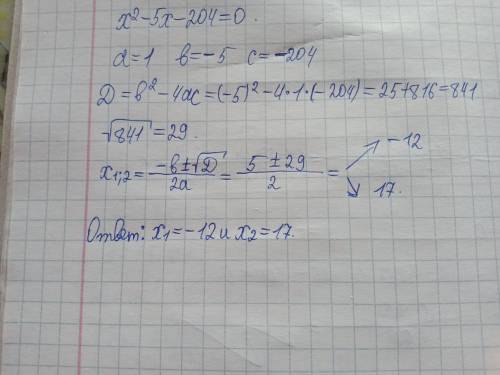 x²-5x-204=0.
a=1 в=-5 c=-204
D=в²-4ac=(-5)²-4·1·(-204)=25+816=841
√841=29.
x₁;₂=(-в±√D)/2a=(5±29)/2= ↗-12 ↘17.
Ответ: x₁=-12 и x₂=17.